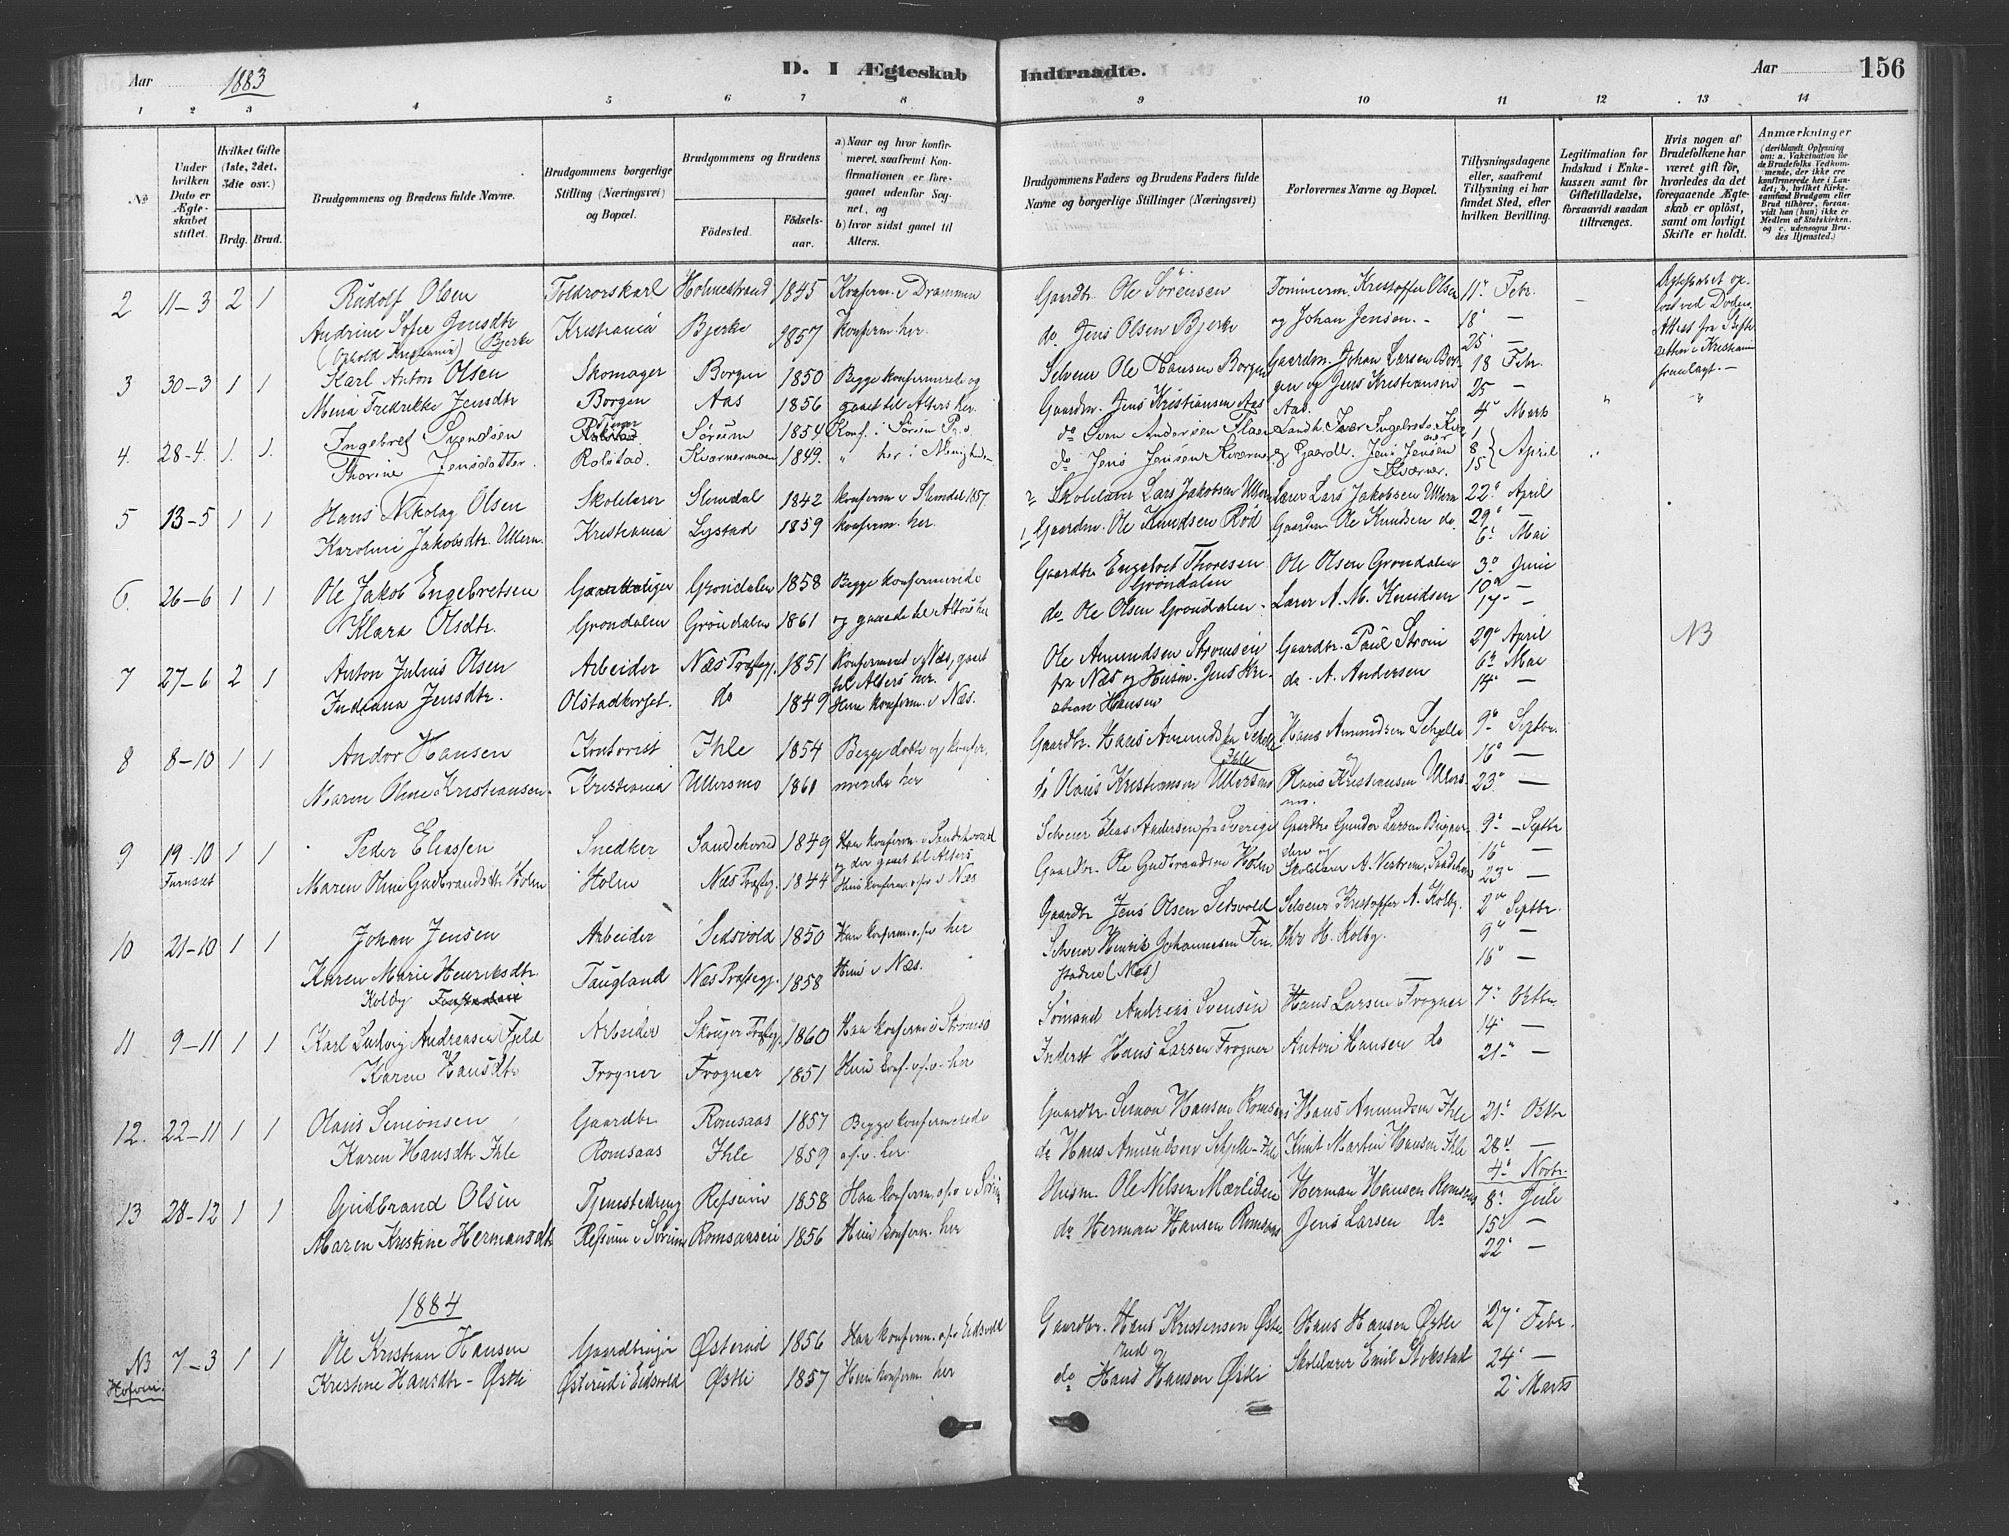 Aar 1883 D. I Ægteskab Indtraadte. Aar 156
1 2 3 4 5 6 7 8 9 10 11 12 13 14
No
Under hvilken Dato er Ægteskabet stiftet.
Hvilket Gifte (1ste, 2det, 3die osv.)
Brdg. Brud.
Brudgommens og Brudens fulde Navne.
Brudgommens borgerlige Stilling (Næringsvei) og Bopæl.
Brudgommens og Brudens
Fødested. Fødselsaar.
a) Naar og hvor konfirmeret, saafremt Konfirmationen er foregaaet udenfor Sognet, og
b) hvor sidst gaaet til Alters.
Brudgommens Faders og Brudens Faders fulde Navne og borgerlige Stillinger (Næringsvei)
Forlovernes Navne og Bopæl.
Tillysningsdagene eller, saafremt Tillysning ei har fundet Sted, efter hvilken Bevilling.
Legitimation for Indskud i Enkekassen samt for Giftetilladelse, forsaavidt saadan tiltrænges.
Hvis nogen af Brudefolkene har været gift før, hvorledes da det foregaaende Ægteskab er opløst, samt om lovligt Skifte er holdt.
Anmærkninger (deriblandt Oplysning om: a. Vakcination for de Brudefolks Vedkommende, der ikke ere konfirmerede her i Landet; b. hvilket Kirkesamfund Brudgom eller Brud tilhører, forsaavidt han (hun) ikke er Medlem af Statskirken, og c. udensogns Brudes Hjemsted.)
2 11-3 2 1 Rudolf Olsen Toldrorskarl Holmestrand 1845 Konferm. i Drammen Gaardbr. Ole Sørensen Tømmerm. Kristoffer Olsen 11' Febr.
Andrine Sofie Jensdtr Bjerke Kristiania Bjerke 1857 Konferm her. do Jens Olsen Bjerke og Johan Jensen. 18' —
(Ophold Kristiania) 25 —
Ægteskabet oplöst ved Döden Attest fra Skifteretten i Kristiania fremlagt.
3 30-3 1 1 Karl Anton Olsen Skomager Borgen 1850 Begge konfermerede og Selveier Ole Hansen Borgen Gaardm. Johan Larsen Borgen og Jens Kristiansen 18 Febr.
Mena Fredrikke Jensdtr Borgen Aas 1856 gaaet til Alters her. Gaardm. Jens Kristiansen Aas Aas. 25 —
4' Mark
4. 28-4. 1. 1. Ingebret Svendsen Rolstad Sørum 1854 Konf. i Sørum Pr.
do Sven Andersen
Thorine Jensdatter. Rolstad. Kværnermoen 1849. " her i Menigheden do Jens Jensen Kværner og Gaardbr. Jens Jensen Kværner. 1 8 15 April
5 13-5 1 1 Hans Nikolay Olsen Skolelærer Slemdal 1842 konferm i Slemdal 1857. 2 Skolelærer Lars Jakobsen Ullern Lærer Lars Jakobsen Ullern 22' April
Karoline Jakobsdtr. Ullern. Kristiania Lystad 1859 konferm. her. 1 Gaardm. Ole Knudsen Rød Gaardm Ole Knudsen do. 29' —
6' Mai
6. 26-6 1 1 Ole Jakob Engebretsen Grøndalen 1858 Begge konfermerede Gaardbr Engebret Thoresen Grøndalen Ole Olsen Grøndalen 3' Juni
Klara Olsdtr. Grøndalen Grøndalen 1861 og gaaede til Alters her do Ole Olsen Grøndalen Lærer A. M. Knudsen 10 —
17 —
7 27-6 2 1 Anton Julius Olsen Arbeider Næs Præstegj. 1851 konfermeret i Næs, gaaet til Alters her. Ole Amundsen Strømsen fra Næs og Husm. Jens Kristian Hansen Gaardbr. Paul Strøm 29' April
Indiana Jensdtr. Olstadkorset. do 1849 Hun konferm. i Næs. do. A. Andersen 6' Mai
14' —
NB
8 8-10 1 1 Andor Hansen Kontorist Ihle 1854 Begge døbte og konfermerede her Gaardbr. Hans Amundsen Schjelle Ihle Hans Amundsen Schjelle og 9' Septbr.
Maren Oline Kristiansen Kristiania Ullersmo 1861 do Olaus Kristiansen Ullersmo Olaus Kristiansen Ullersmo. 16' —
23' —
9 19-10 1 1 Peder Eliassen Snedker Sandehered 1849 Han konferm. i Sandehered og der gaaet til Alters Selveier Elias Andersen fra Sverige Gaardbr Gunder Larsen 9' — Septbr
Furuset Maren Oline Gudbrandsdtr Holm Holm Næs Præstegj. 1844 Hun konferm. o.p.v. i Næs Gaardbr. Ole Gudbrandsen Holm Skolelærer A. Nestrem, Sandehered 16' —
23' —
10 21-10 1 1 Johan Jensen Arbeider Sedsvold 1850 Han konferm. o.p.v her Gaardbr Jens Olsen Sedsvold Selveier Kristoffer A. Kolby. 2' Septbr.
Karen Marie Henriksdtr. Kolby Taugland Næs Præstegj. 1858 Hun i Næs. Selveier Henrik Johannesen Fenstaden (Næs) Chr. H. Kolby. 9' —
16' —
11 9-11 1 1 Karl Ludvig Andreassen Fjeld Arbeider Skouger Præstegj. 1860 Han konferm i Strømsø Sømand Andreas Svensen Hans Larsen Frogner 7' Oktbr
Karen Hansdtr Frogner Frogner 1851 Hun konf. o.p.v. her Inderst Hans Larsen Frogner Anton Hansen do 14' —
21' —
12. 22-11 1 1 Olaus Simonsen Gaardbr Romsaas 1857 Begge konfermerede Gaardbr. Simon Hansen Romsaas Hans Amundsen Ihle 21' Oktbr
Karen Hansdtr Ihle Romsaas Ihle 1859 o.p.v. her. do Hans Amundsen Schjelle-Ihle Knut Marten Hansen Ihle 28' —
4' Novbr.
13 28-12 1 1 Gudbrand Olsen Tjenestedreng Refsum 1858 Han konferm. o.p.v i Sørum Husm. Ole Nilsen Mærliden Herman Hansen Romsaas 8' Juli
Maren Kristine Hermansdtr Refsum i Sørum Romsaaseie 1856 Hun konferm. her do Herman Hansen Romsaas Jens Larsen do 15' —
22' —
1884
NB Hofvin. 7-3 1 1 Ole Kristian Hansen Gaardbruger Østerud 1856 Han konferm. o.p.v Eidsvold Gaardbr. Hans Kristensen Østerud og Hans Hansen Østli 27' Febr.
Kristine Hansdtr - Østli Østerud i Eidsvold Østli 1857 Hun konferm. her do Hans Hansen Østli Skolelærer Emil Stokstad 24' —
2' Marts